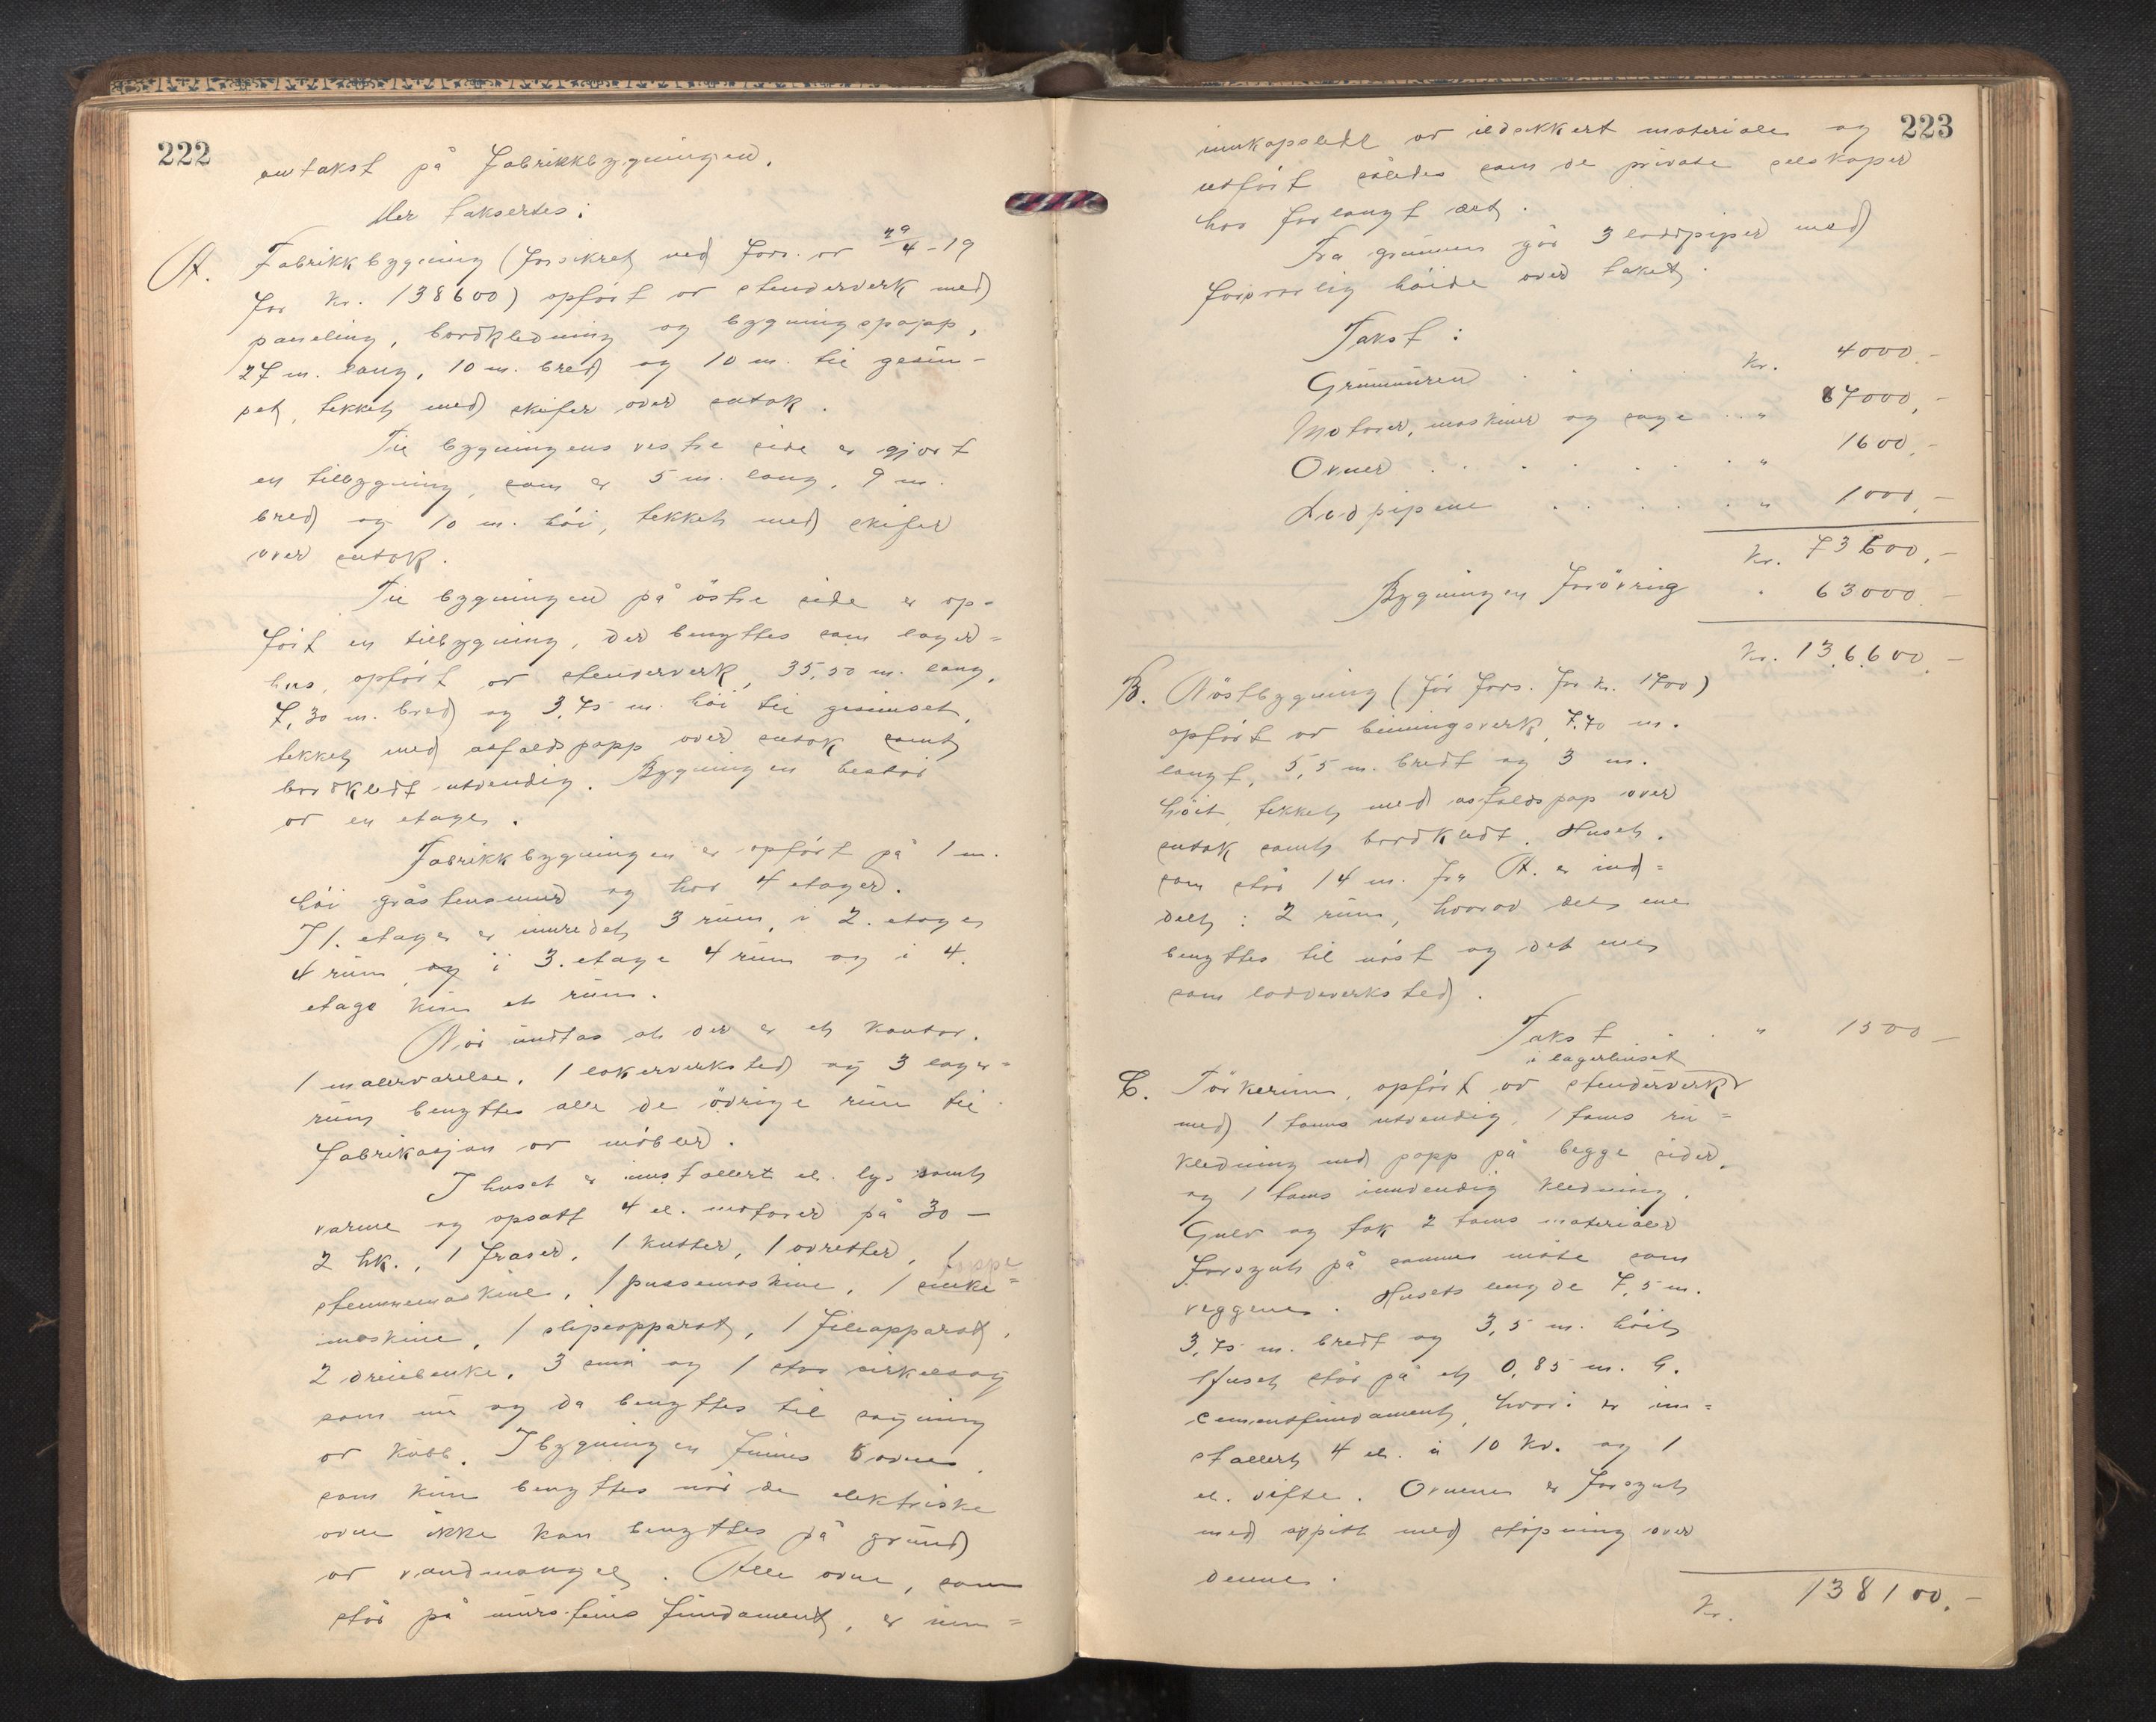 222
omtakst på Fabrikkbygningen.
Her takseres:
A. Fabrikkbygning (forsikret ved fors. av 29/4-19
for kr. 138600) opført av stenderverk med
paneling, bordkledning og bygningspapp,
27 m. lang, 10 m. bred og 10 m. til gesim-
set, tekket med skifer over sutak.
Til bygningens vestre side er gjort
en tilbygning, som er 5 m. lang, 9 m.
bred og 10 m. høi, tekket med skifer
over sutak.
Til bygningen på østre side er op-
ført en tilbygning, der benyttes som lager=
hus, opført av stenderverk, 35,50 m. lang,
7,30 m. bred og 3,75 m. høi til gesimset,
tekket med asfaldspapp over sutak samt
bordkledt utvendig. Bygningen består
av en etage.
Fabrikkbygningen er opført på 1 m.
høi gråstensmur og har 4 etager.
I 1. etage er innredet 3 rum, i 2. etage
4 rum, og i 3. etage 4 rum og i 4.
etage kun et rum.
Når undtas at der er et kontor,
1 malerværelse, 1 lakerverksted og 3 lager=
rum benyttes alle de øvrige rum til
fabrikasjon av møbler.
I huset er installert el. lys samt
varme og opsatt 4 el. motorer på 30 —
2 hk., 1 fraser, 1 kutter, 1 avretter, 1
stemmemaskine, 1 pussemaskine, 1 sinke=
maskine, 1 slipeapparat, 1 fileapparat,
2 dreiebenke, 3 små og 1 stor sirkelsag
som nu og da benyttes til saging
av kubb. I bygningen finnes 8 ovner,
som kun benyttes når de elektriske
ovne ikke kan benyttes på grund
av vandmangel. Alle ovne, som
står på murstens fundament, er inn=
223
innkapslede av ildsikkert materiale og
utført således som de private selskaper
har forlangt det.
Fra grunnen går 3 loddpiper med
forsvarlig høide over taket.
Takst:
Grunnmuren . . . . Kr. 4000.-
Motorer, maskiner og sage . . " 67000,-
Ovner . . . . . . . " 1600,-
Lodpipene . . . . . " 1000,-
Kr. 73600,-
Bygningen forøvrig " 63000 -
Kr. 136600,-
B. Nøstbygning (før fors. for kr. 1700)
opført av binningsverk, 7,70 m.
langt, 5,5 m. bredt og 3 m.
høit, tekket med asfaldspap over
sutak samt bordkledt. Huset,
som står 14 m. fra A. er ind=
delt i 2 rum, hvorav det ene
benyttes til nøst og det ene
som loddeverksted.
Takst . . " 1500 -
i lagerhuset
C. Tørkerum, opført av stenderverk
med 1 toms utvendig, 1 toms ru=
kledning med papp på begge sider,
og 1 toms innvendig kledning.
Gulv og tak 2 toms materialer
forsynt på samme måte som
veggene. Husets lengde 7,5 m.
3,75 m. bredt og 3,5 m. høit
Huset står på et 0,85 m. h.
cementfundament, hvori er inn=
stallert 4 el. à 10 kv. og 1
el. vifte. Ovnene er forsynt
med oppitt med støpning over
denne.
Kr. 138100.-